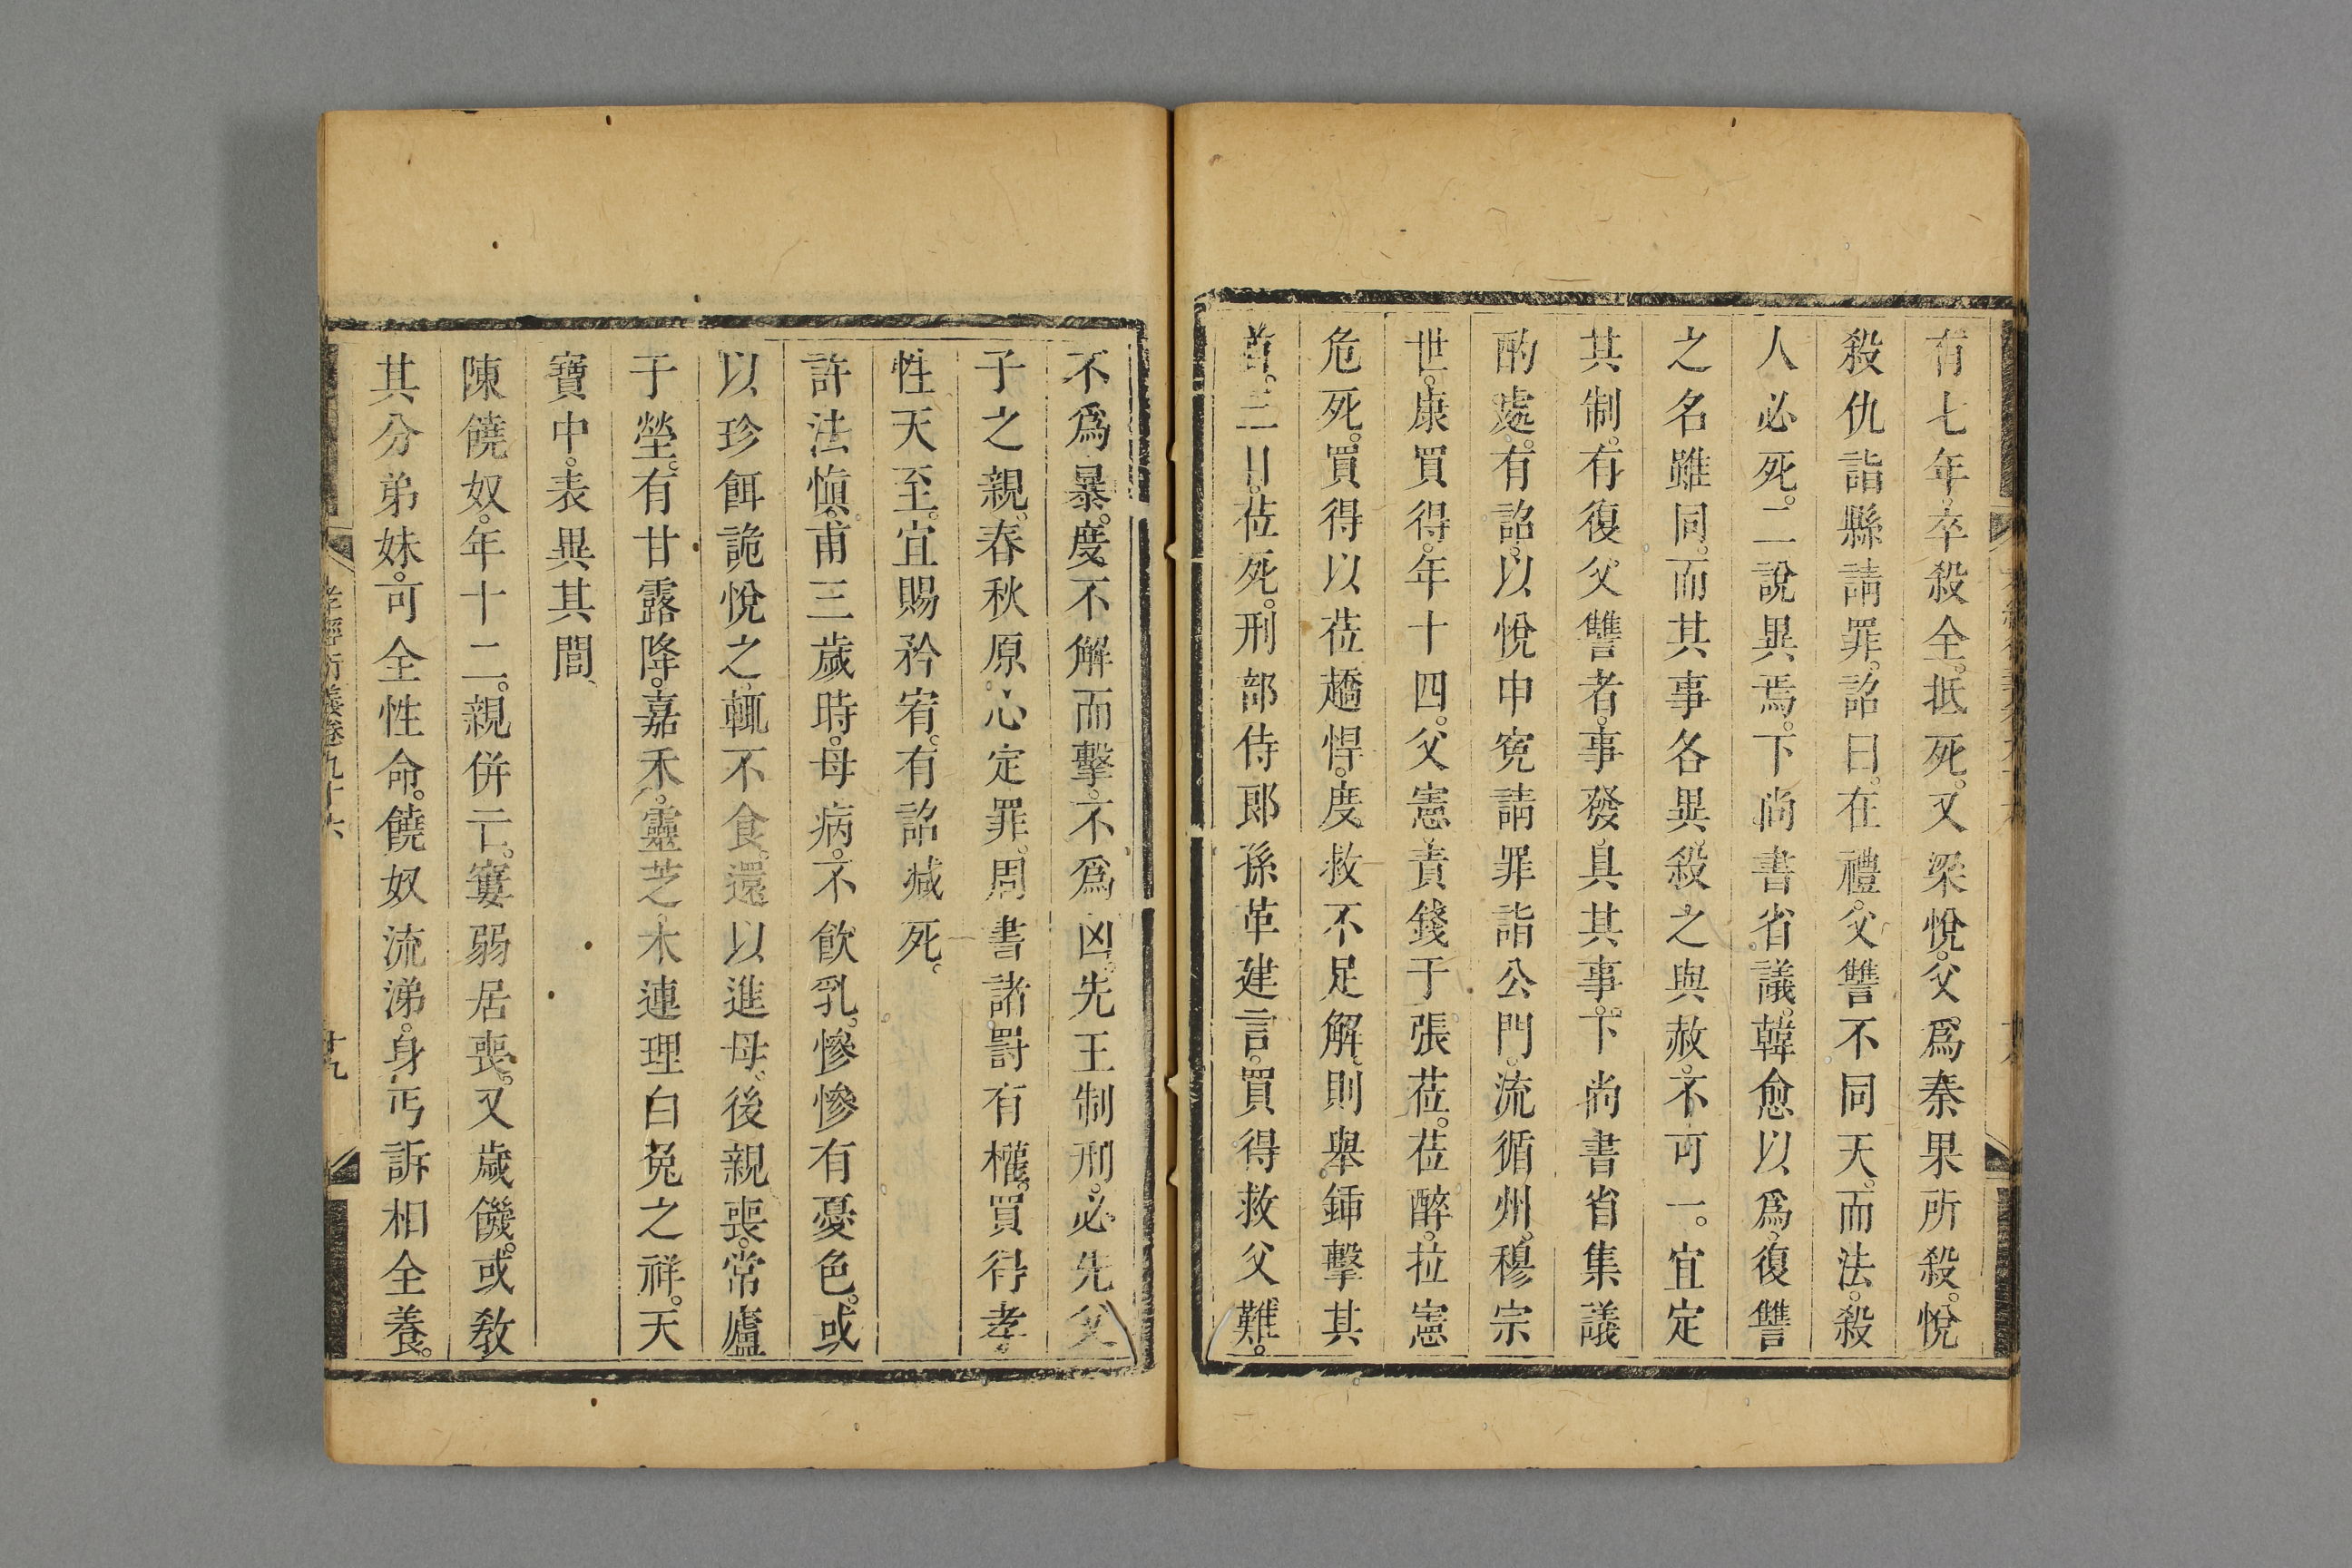 有七年卒殺全。抵死。又梁悅。父爲秦果所殺。悅
殺仇詣縣請罪。詔曰。在禮。父讐不同天。而法。殺
人必死。二說異焉。下尚書省議。韓愈以爲。復讐
之名雖同。而其事各異。殺之與赦。不可一。宜定
其制。有復父讐者。事發。具其事。下尚書省集議
酌處。有詔。以悅申寃請罪詣公門。流循州。穆宗
世。康買得。年十四。父憲。責錢于張莅。莅醉。拉憲
危死。買得以莅趫悍。度救不足解。則舉鍤擊其
首。三日。莅死。刑部侍郎孫革建言。買得救父難。
不爲暴。度不解而擊。不爲凶。先王制刑。必先父
子之親。春秋原心定罪。周書諸罰有權。買得孝
性天至。宜賜矜宥。有詔減死。
許法愼。甫三歲時。母病。不飲乳。慘慘有憂色。或
以珍餌詭悅之。輒不食。還以進母。後親喪。常廬
于塋。有甘露降。嘉禾。靈芝木連理白兔之祥。天
寶中。表異其閭。
陳饒奴。年十二。親併亡。窶弱居喪。又歲饑。或敎
其分弟妹。可全性命。饒奴流涕。身丐訴相全養。
孝經衍義卷九十六 廿九